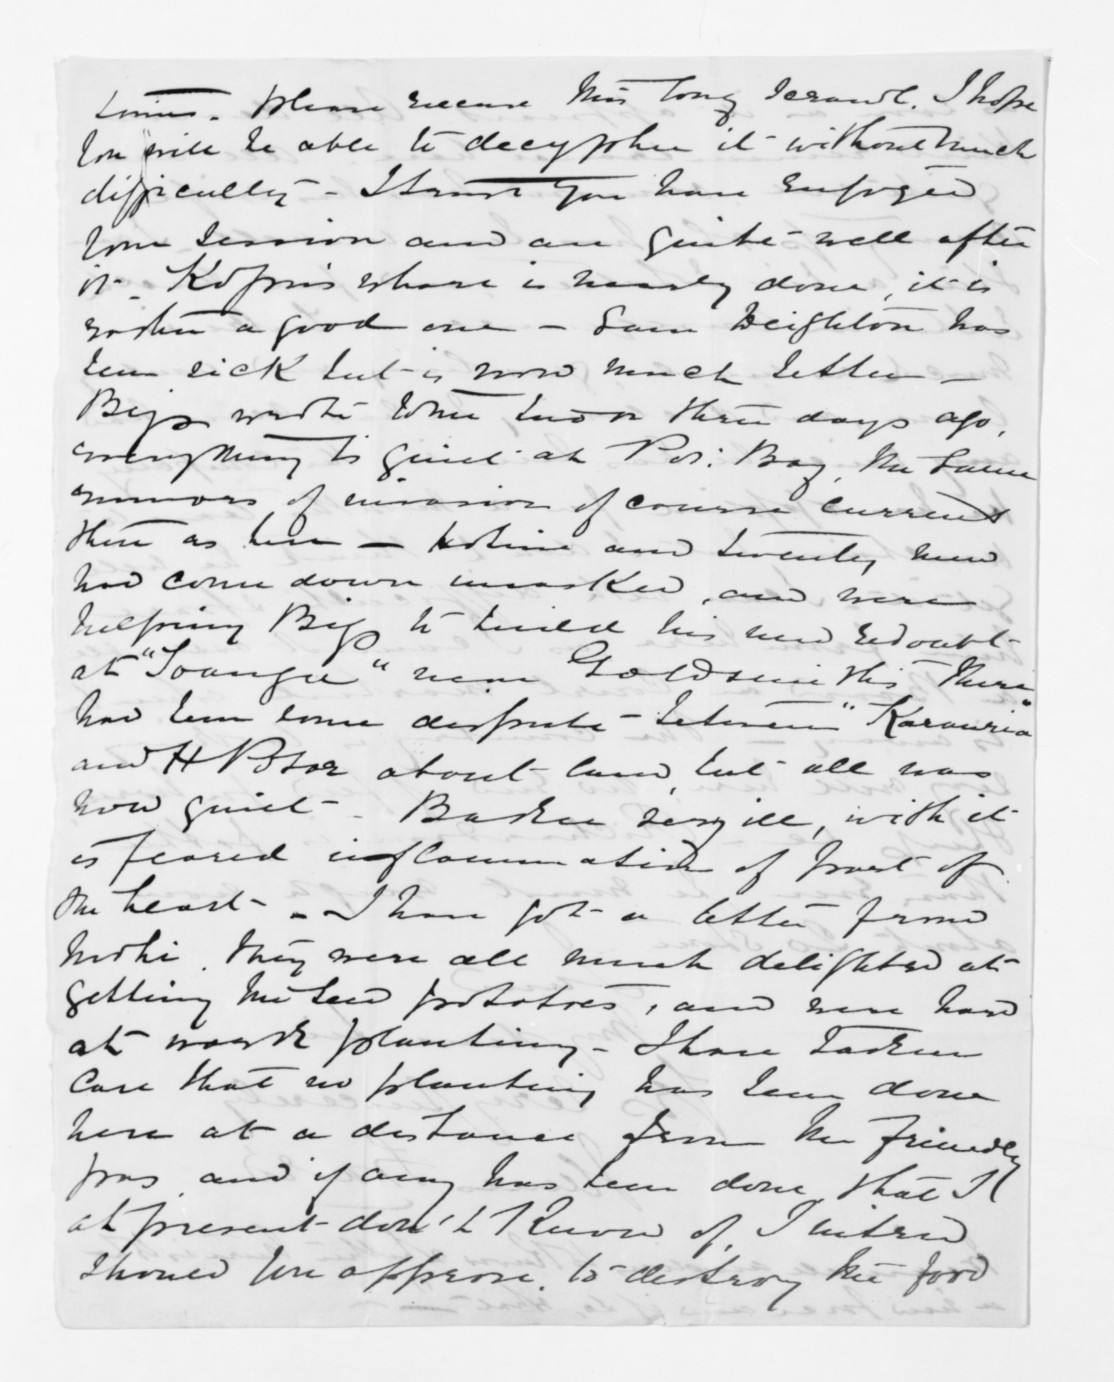 times. please excuse this long scrawl. I hope
you will be able to decypher it without much
difficulty - I trust you have enjoyed
your session and are quite well after
it. Kopu's whare is nearly done, it is
rather a good one - Sam Deighton has
been sick but is now much better -
Bigs wrote two or three days ago,
everything is quiet at Pov: Bay, the same
rumours of invasion of course current
there as here - Hotene and twenty men
had come down unasked, and were
helping Bigs to build his new redoubt
at "Toanga" near Goldsmiths There
had been some dispute between "Karauria"
and H about land, but all was
now quiet - Barker very ill, with it
is feared inflammation of part of
the heart - I have got a letter from
Mohi. they were all much delighted at
getting the seed potatoes, and were hard
at work planting - I have taken
care that no planting has been done
here at a distance from the friendly
pas and if any has been done, that I
at present don't know of, I intend
should you approve. to destroy the food